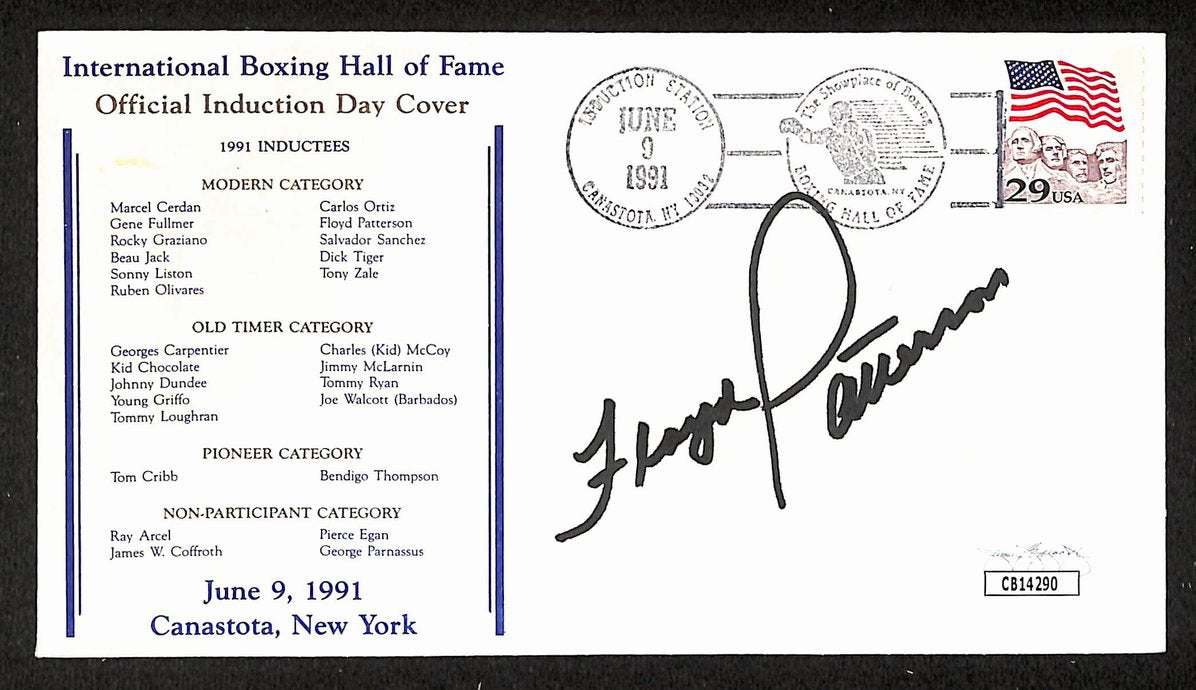 International Boxing Hall of Fame
Official Induction Day Cover
1991 INDUCTEES
MODERN CATEGORY
Marcel Cerdan
Gene Fullmer
Rocky Graziano
Beau Jack
Sonny Liston
Ruben Olivares
Carlos Ortiz
Floyd Patterson
Salvador Sanchez
Dick Tiger
Tony Zale
OLD TIMER CATEGORY
Georges Carpentier
Kid Chocolate
Johnny Dundee
Young Griffo
Tommy Loughran
Charles (Kid) McCoy
Jimmy McLarnin
Tommy Ryan
Joe Walcott (Barbados)
PIONEER CATEGORY
Tom Cribb
Bendigo Thompson
NON-PARTICIPANT CATEGORY
Ray Arcel
James W. Coffroth
Pierce Egan
George Parnassus
June 9, 1991
Canastota, New York
INDUCTION STATION
JUNE
9
1991
CANASTOTA, NY 13032
The Showplace of Boxing
CANASTOTA, NY
BOXING HALL OF FAME
29 USA
Floyd Patterson
CB14290